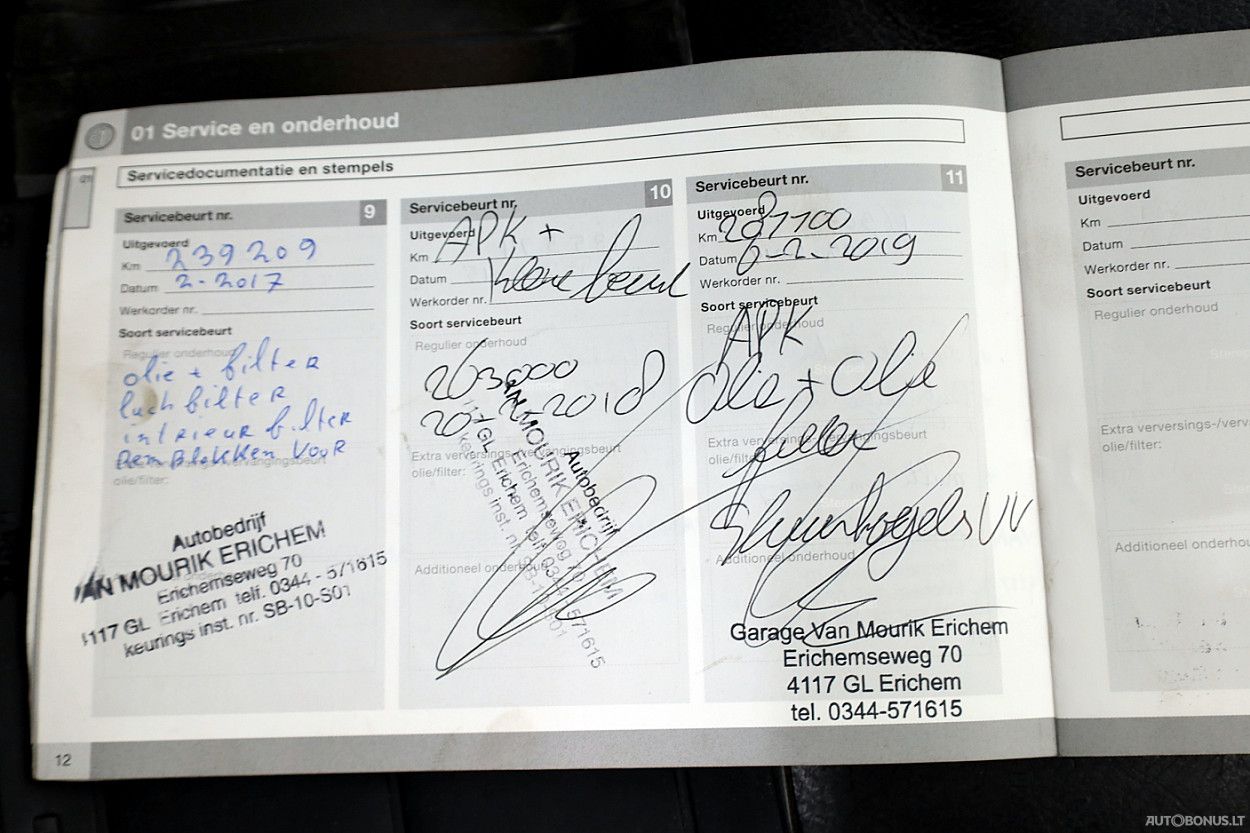 01 Service en onderhoud
01
Servicedocumentatie en stempels
Servicebeurt nr. 9
Uitgevoerd
Km 239209
Datum 2-2017
Werkorder nr.
Soort servicebeurt
Regulier onderhoud
olie + filter
luchfilter
intrieur filter
Remblokken VOOR
Extra verversings-/vervangingsbeurt
olie/filter:
Autobedrijf
VAN MOURIK ERICHEM
Erichemseweg 70
4117 GL Erichem telf. 0344 - 571615
keurings inst. nr. SB-10-S01
12
Servicebeurt nr. 10
Uitgevoerd
APK +
Km
Datum
kleine beurt
Werkorder nr.
Soort servicebeurt
Regulier onderhoud
263000
2018
Extra verversings-/vervangingsbeurt
olie/filter:
Autobedrijf
VAN MOURIK ERICHEM
Erichemseweg 70
4117 GL Erichem telf. 0344 - 571615
keurings inst. nr. SB-10-S01
Additioneel onderhoud
Servicebeurt nr. 11
Uitgevoerd
Km 287100
Datum 6-2-2019
Werkorder nr.
Soort servicebeurt
Regulier onderhoud
APK
Olie + Olie
filter
Extra verversings-/vervangingsbeurt
olie/filter:
Stuurkogels VV
Additioneel onderhoud
Garage Van Mourik Erichem
Erichemseweg 70
4117 GL Erichem
tel. 0344-571615
Servicebeurt nr.
Uitgevoerd
Km
Datum
Werkorder nr.
Soort servicebeurt
Regulier onderhoud
Extra verversings-/verv
olie/filter:
Additioneel onderhou
AUTOBONUS.LT